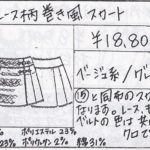 ース柄巻き風スカート
¥18,80
ベージュ系/グレ
⑮と同布のスカ
なります。レース、も
ベルトの色は共
クロで
ポリエステル 23%
ポリウレタン 2%
綿 31%